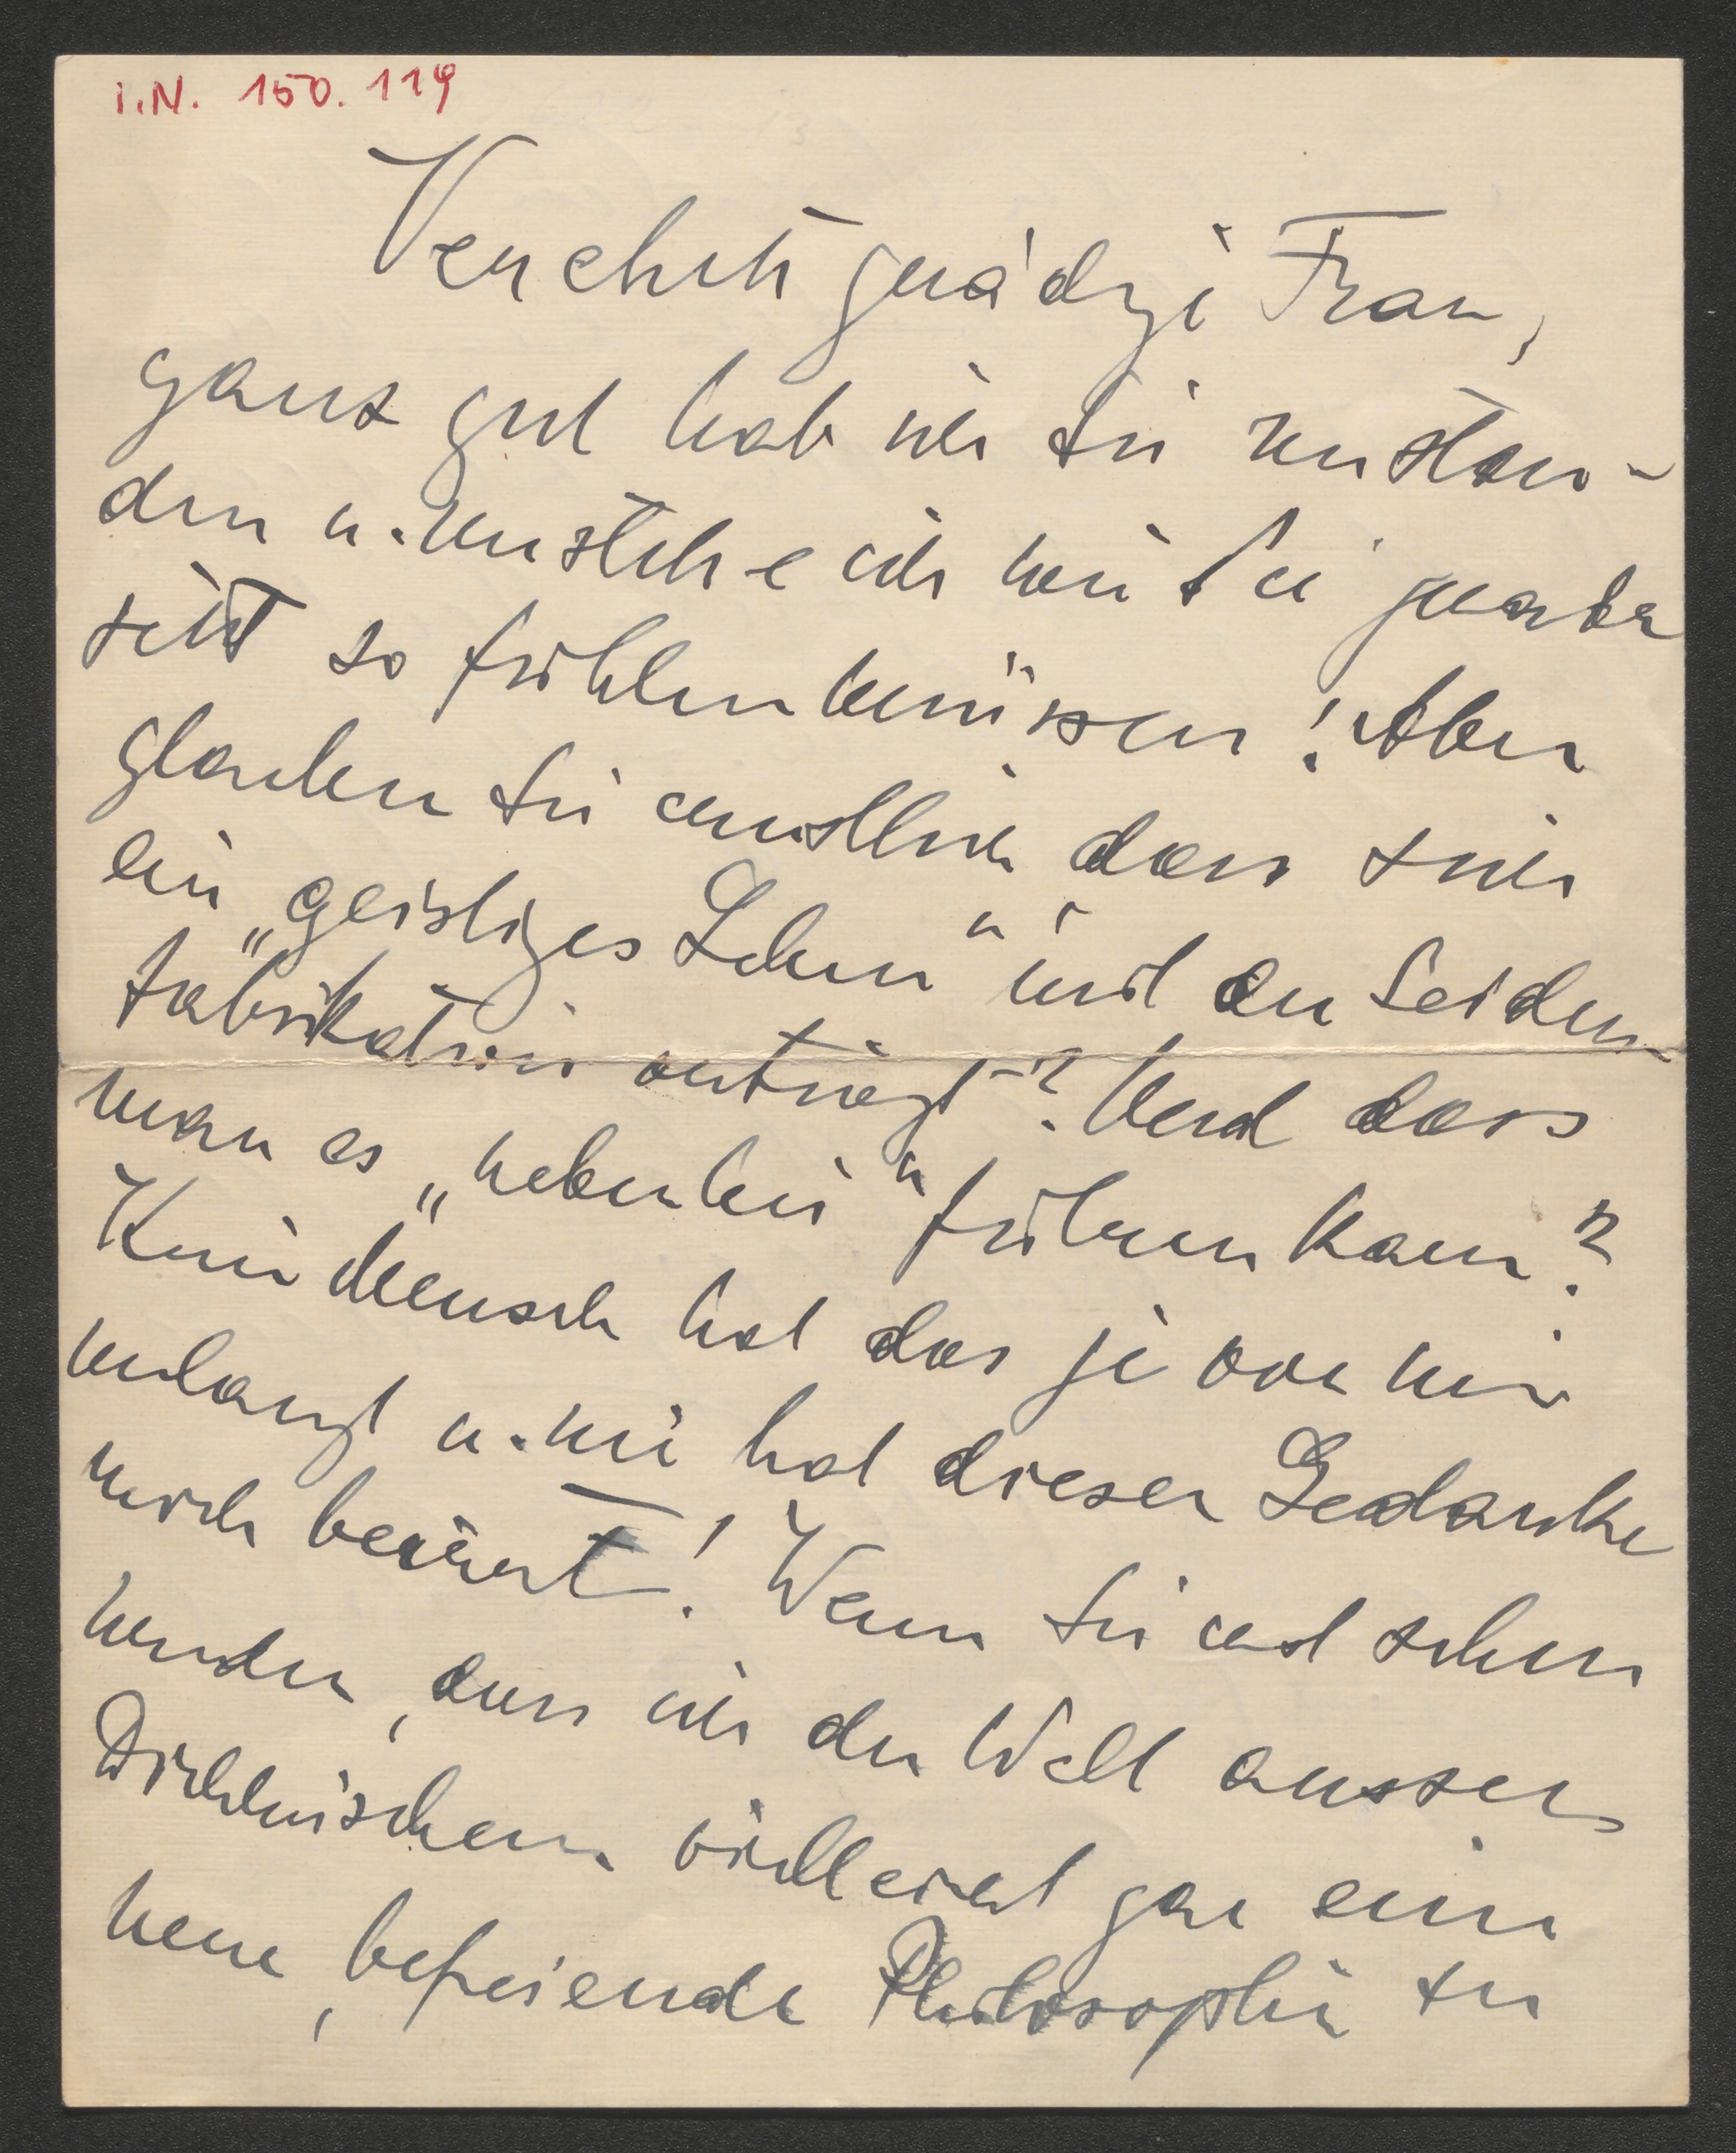 I.N. 150.119
Verehrte gnädige Frau,
ganz gut hab ich Sie verstan-
den u. verstehe ich wie Sie gerade
jetzt so fühlen müssen! Aber
glauben Sie ernstlich dass sich
ein „geistiges Leben" mit der Seiden-
fabrikation verträgt? Und dass
man es „nebenbei" führen kann?
Kein Mensch hat das je von mir
verlangt u. nie hat dieser Gedanke
mich beirrt! Wenn Sie erst sehen
werden, dass ich der Welt ausser
Dichterischem vielleicht gar eine
neue, befreiende Philosophie zu